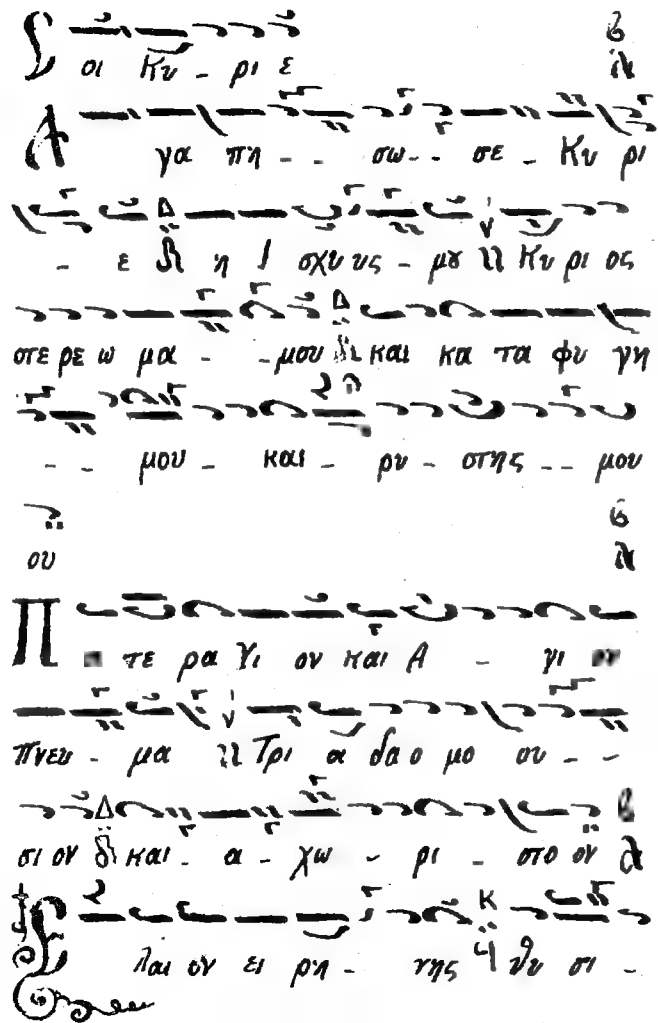 Σοι Κυ - ρι ε
Α γα πη - - σω - - σε - Κυ ρι
- ε η Ι σχυ υς - μȣ Κυ ρι ος
στε ρε ω μα - - μου και κα τα φυ γη
- - μου - και - ρυ - στης - - μου
ου
Π τε ρα Υι ον και Α - γι ον
πνευ - μα Τρι α δα ο μο ου - -
σι ον και - α - χω - ρι - στο ον
Ε λαι ον ει ρη - νης θυ σι -